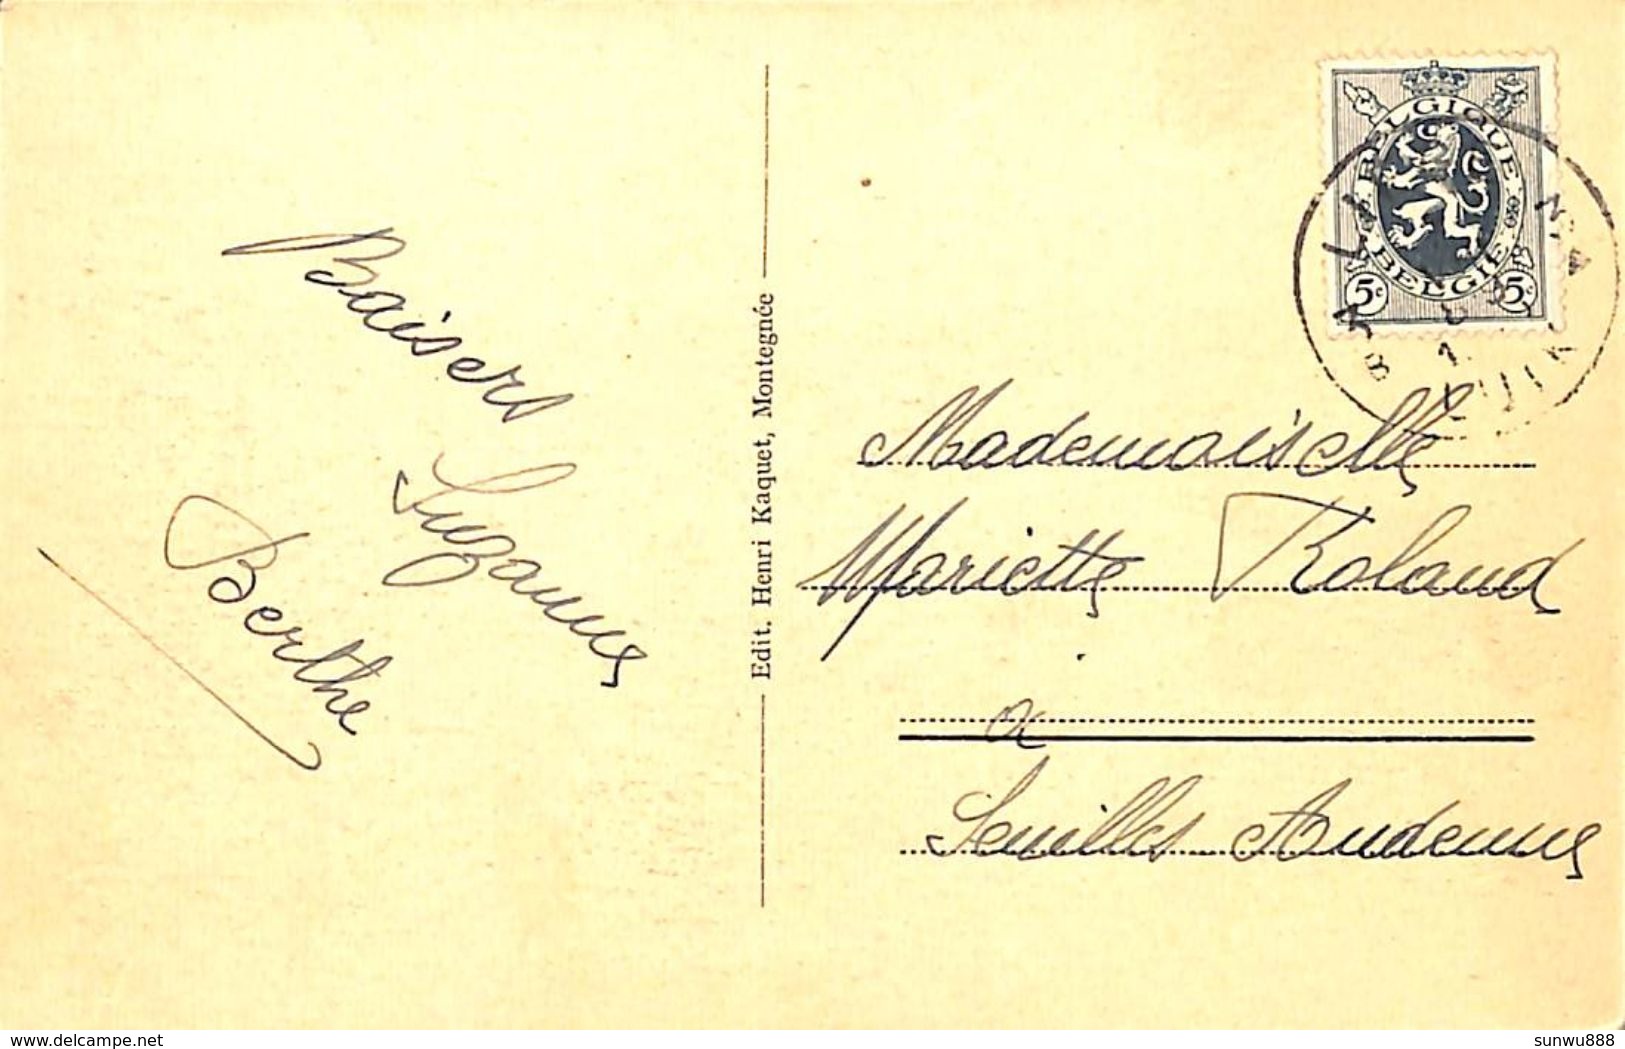 Baisers
Suzanne
Berthe
Edit. Henri Kaquet, Montegnée
BELGIQUE
BELGIE
5c 5c
Mademoiselle
Mariette Roland
à
Seuilles Andenne
delcampe.net
sunwu888